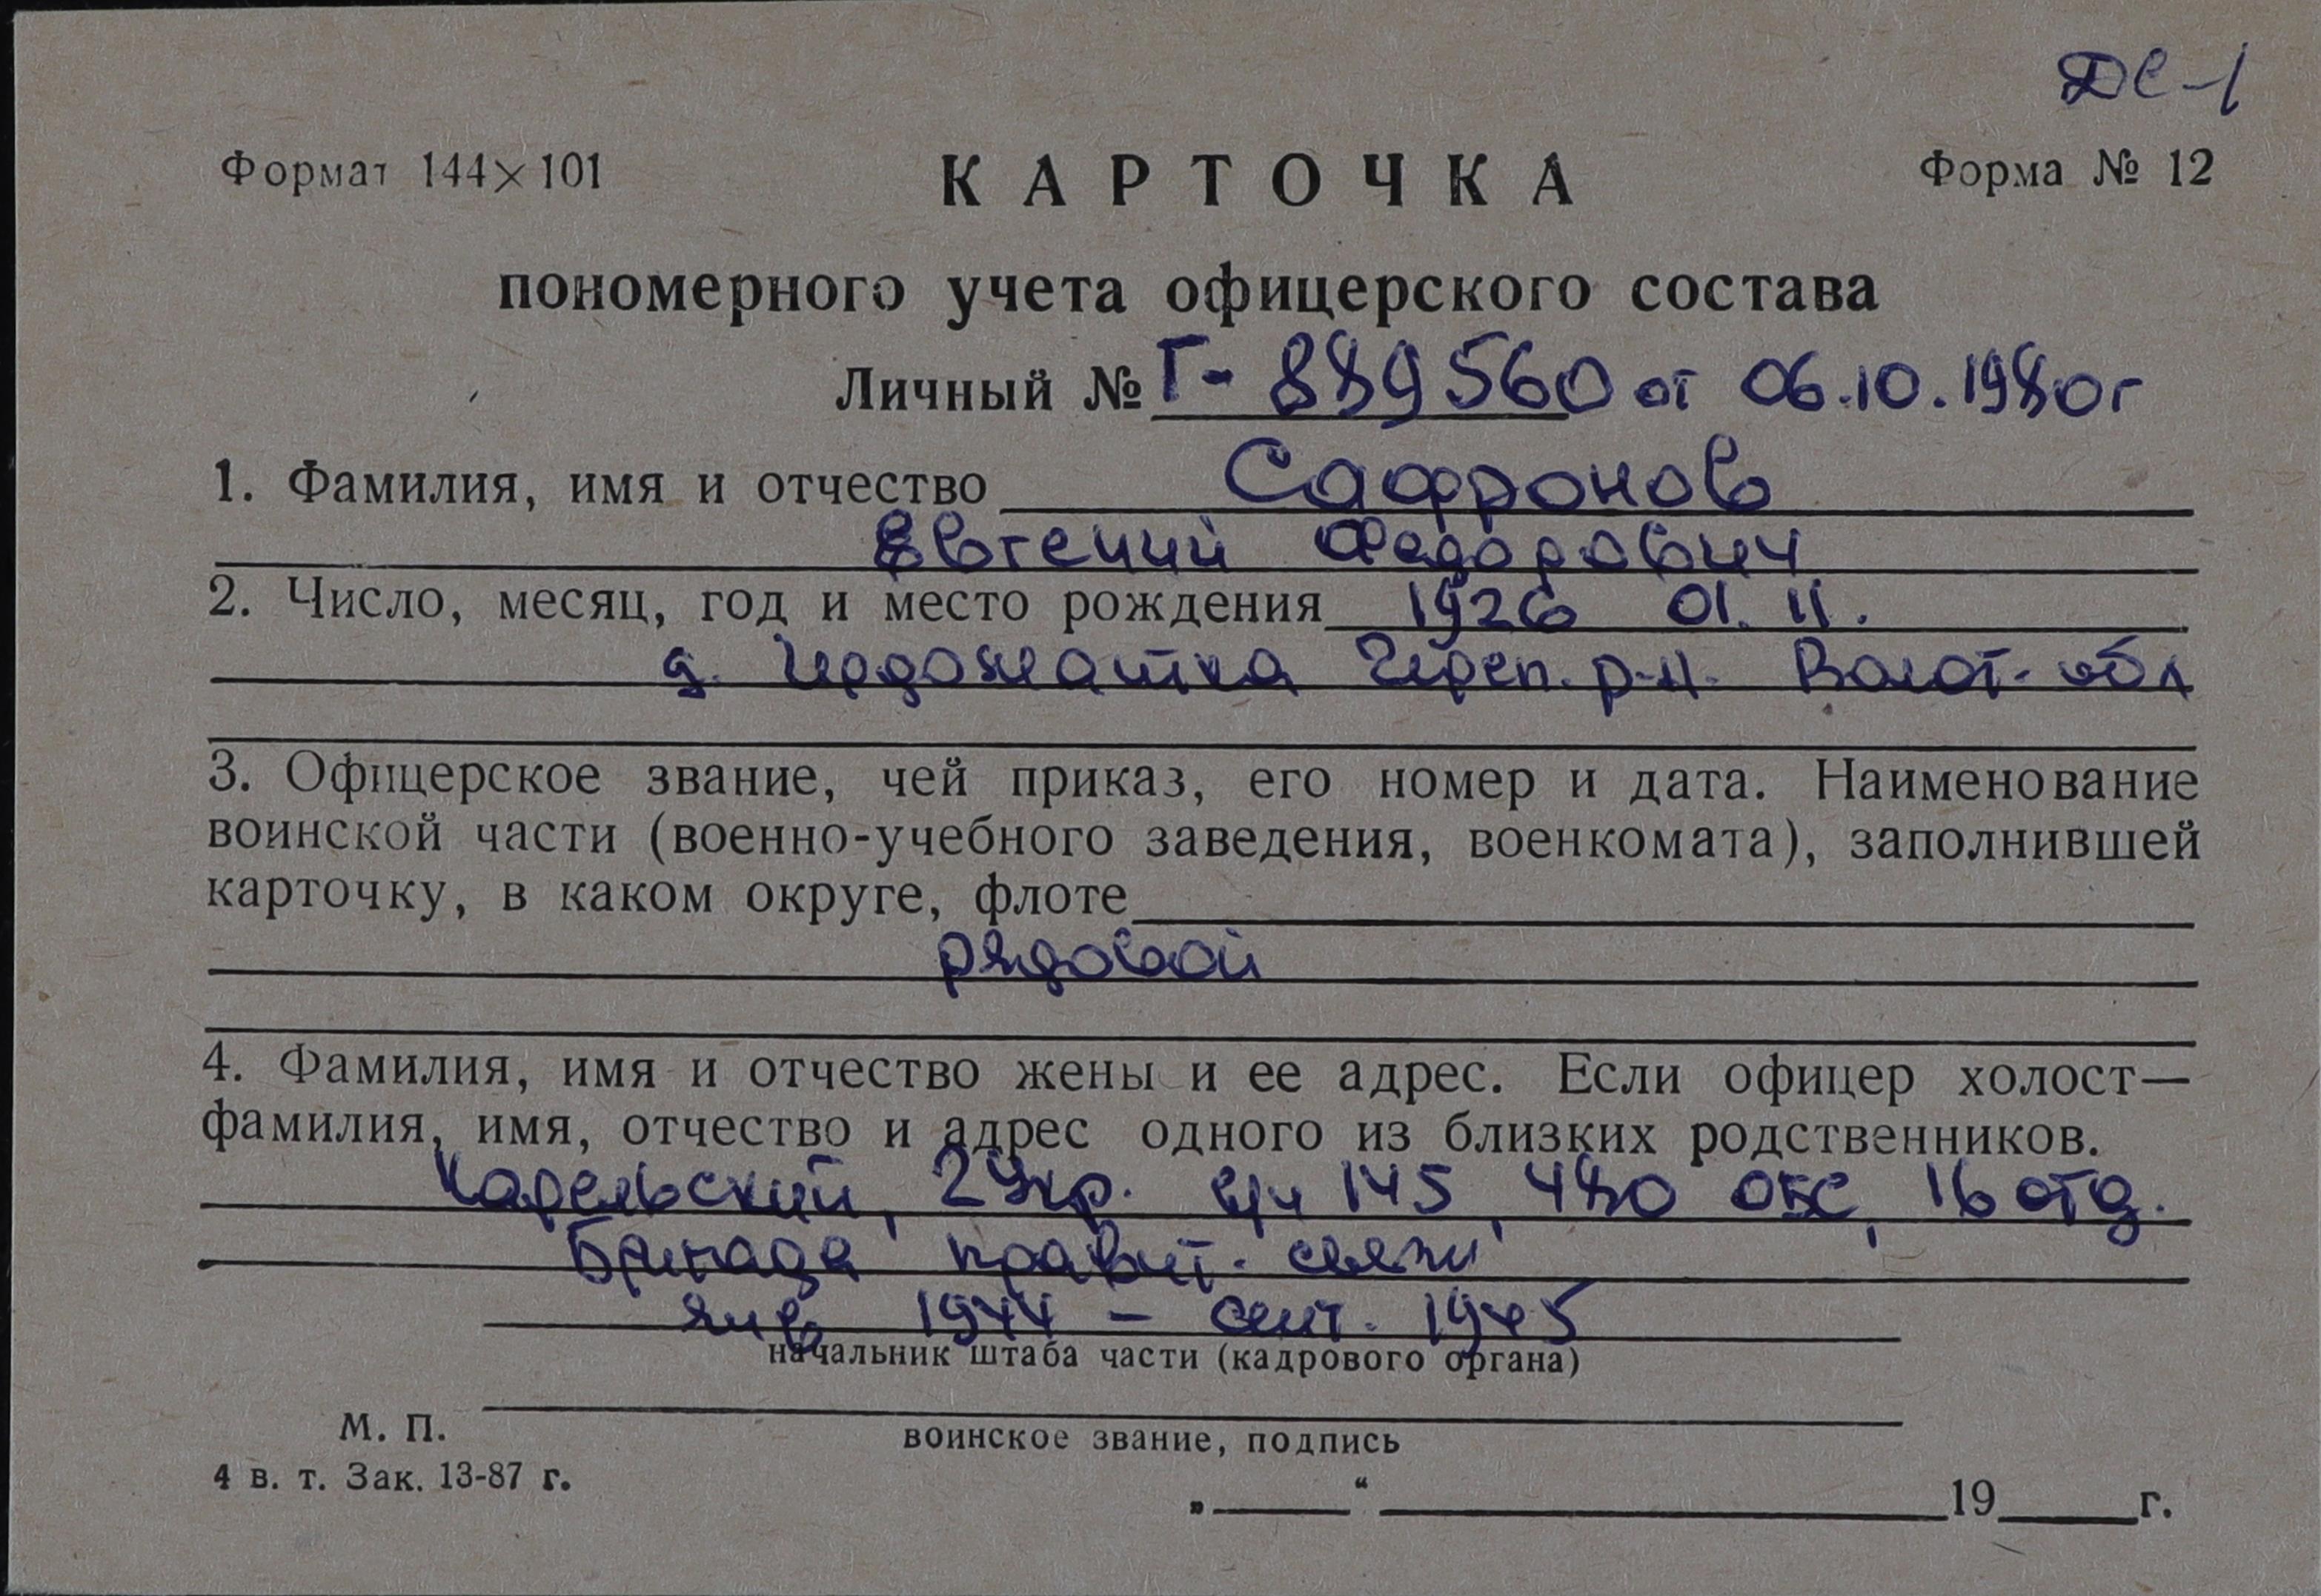 ДС-1
Формат 144×101 КАРТОЧКА Форма № 12
пономерного учета офицерского состава
Личный № Г-889560 от 06.10.1980г
1. Фамилия, имя и отчество Сафронов
Евгений Федорович
2. Число, месяц, год и место рождения 1926 01. 11.
д. Череп. р-н. Волог. обл
3. Офицерское звание, чей приказ, его номер и дата. Наименование
воинской части (военно-учебного заведения, военкомата), заполнившей
карточку, в каком округе, флоте
рядовой
4. Фамилия, имя и отчество жены и ее адрес. Если офицер холост—
фамилия, имя, отчество и адрес одного из близких родственников.
Карельский, 2Укр. в/ч 145, 480 ОБС, 16 отд.
Бригада правит. связи
янв 1944 – сент. 1945
начальник штаба части (кадрового органа)
М. П.
воинское звание, подпись
4 в. т. Зак. 13-87 г.
„ “ 19 г.